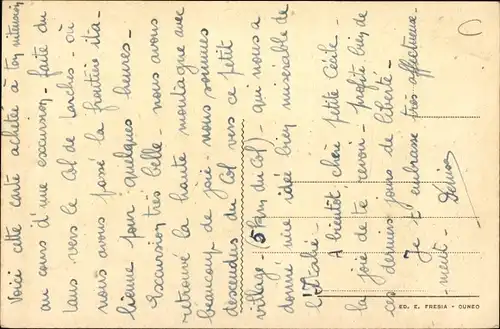 Voici cette carte achetée à ton intention
au cours d'une excursion - faite du
Laus vers le Col de Larchis - où
nous avons passé la frontière ita-
lienne pour quelques heures -
Excursion très belle - nous avons
retrouvé la haute montagne avec
beaucoup de joie - nous sommes
descendus du Col vers ce petit
village - (5 km du Col) - qui nous a
donné une idée bien misérable de
l'Italie -
A bientôt chère petite Cécile -
la joie de te revoir - profite bien de
ces derniers jours de liberté -
Je t'embrasse très affectueuse-
ment - Denise
ED. E. FRESIA - CUNEO